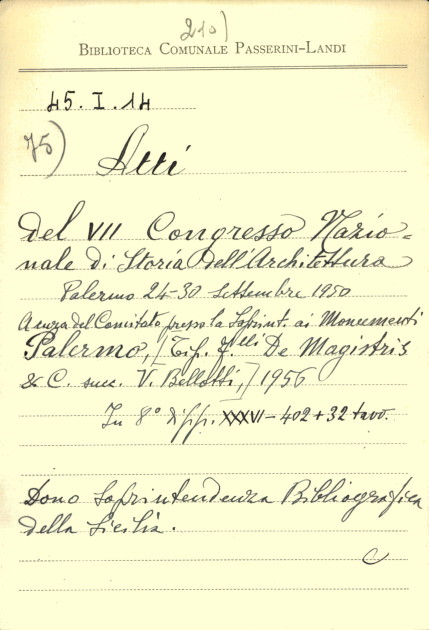 210)
BIBLIOTECA COMUNALE PASSERINI-LANDI
45. I. 14
75)
Atti
del VII Congresso Nazio=
nale di Storia dell'Architettura
Palermo 24-30 Settembre 1950
A cura del Comitato presso la Soprint. ai Monumenti
Palermo, [Tip. F.lli De Magistris
& C. succ. V. Bellotti,] 1956
In 8° di pp. XXXVI-402+32 tavv.
Dono Soprintendenza Bibliografica
della Sicilia.
C